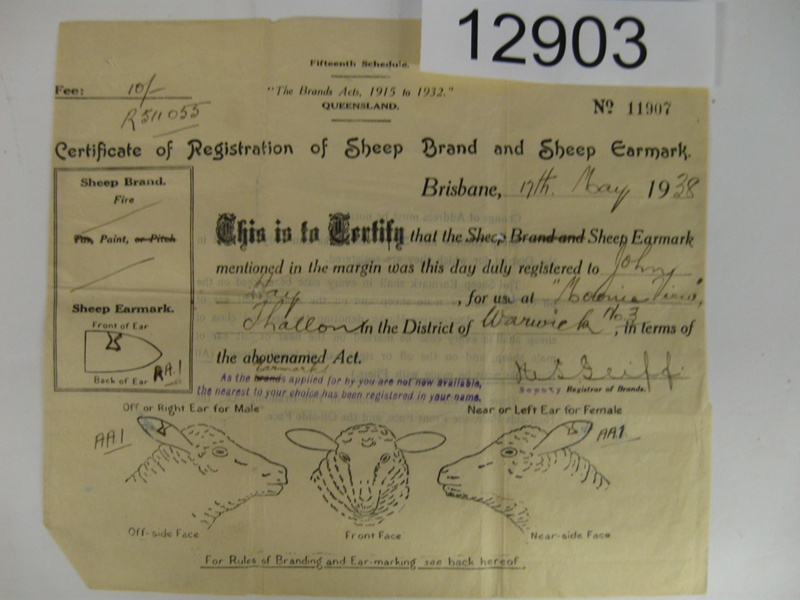 12903
Fifteenth Schedule.
Fee: 10/-
"The Brands Acts, 1915 to 1932."
R511055
QUEENSLAND.
No 11907
Certificate of Registration of Sheep Brand and Sheep Earmark.
Brisbane, 17th. May 1938
Sheep Brand.
Fire
Tar, Paint, or Pitch
Sheep Earmark.
Front of Ear
AA.1
Back of Ear
This is to Certify that the Sheep Brand and Sheep Earmark
mentioned in the margin was this day duly registered to John
Hay, for use at "Moonie View,"
Thallon in the District of Warwick No 3, in terms of
the abovenamed Act.
earmarks
As the brands applied for by you are not now available,
the nearest to your choice has been registered in your name.
Deputy Registrar of Brands.
Off or Right Ear for Male
Near or Left Ear for Female
AA1
AA1
Off-side Face
Front Face
Near-side Face
For Rules of Branding and Ear-marking see back hereof